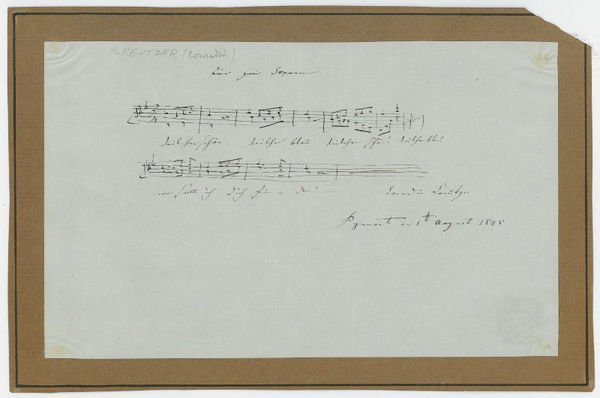 KREUTZER (Conradin)
für zwei Soprane
Veilchen schön Veilchen blau Veilchen schön Veilchen blau
wo soll ich dich Conradin Kreutzer
Pyrmont August